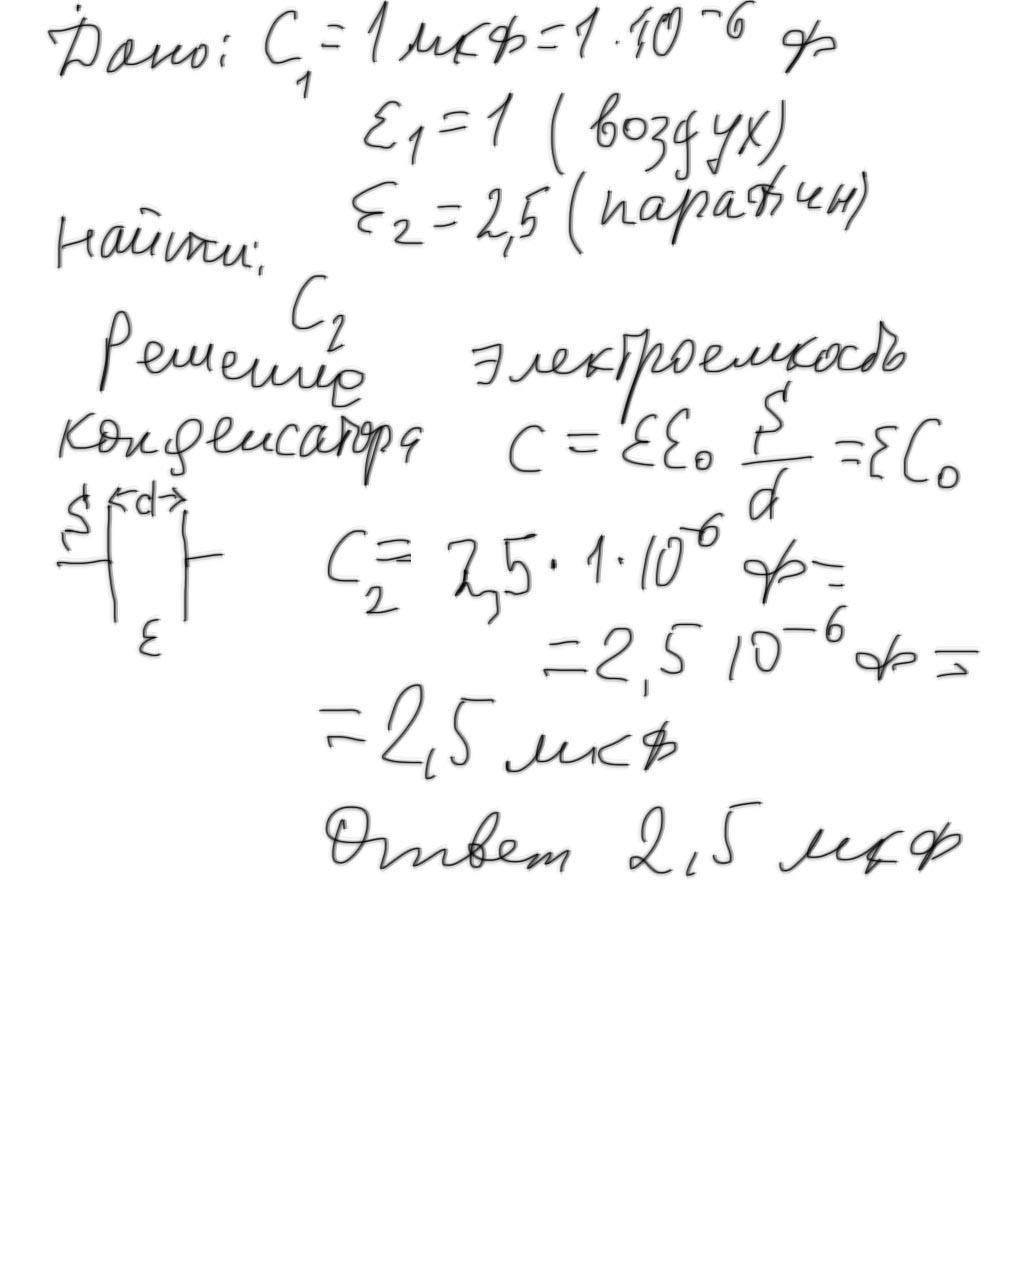 Дано: C₁ = 1 мкф = 1 · 10⁻⁶ ф
ε₁ = 1 (воздух)
ε₂ = 2,5 (парафин)
Найти:
C₂
Решение электроемкость
конденсатора C = εε₀ S/d = εC₀
S d
C₂ = 2,5 · 1 · 10⁻⁶ ф =
ε
= 2,5 10⁻⁶ ф =
= 2,5 мкф
Ответ 2,5 мкф